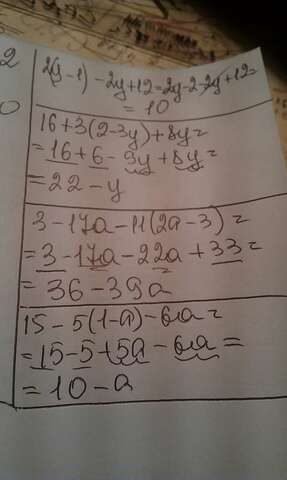 2
2(y-1)-2y+12=2y-2-2y+12=
=10
0
16+3(2-3y)+8y=
=16+6-9y+8y=
=22-y
3-17a-11(2a-3)=
=3-17a-22a+33=
=36-39a
15-5(1-a)-6a=
=15-5+5a-6a=
=10-a